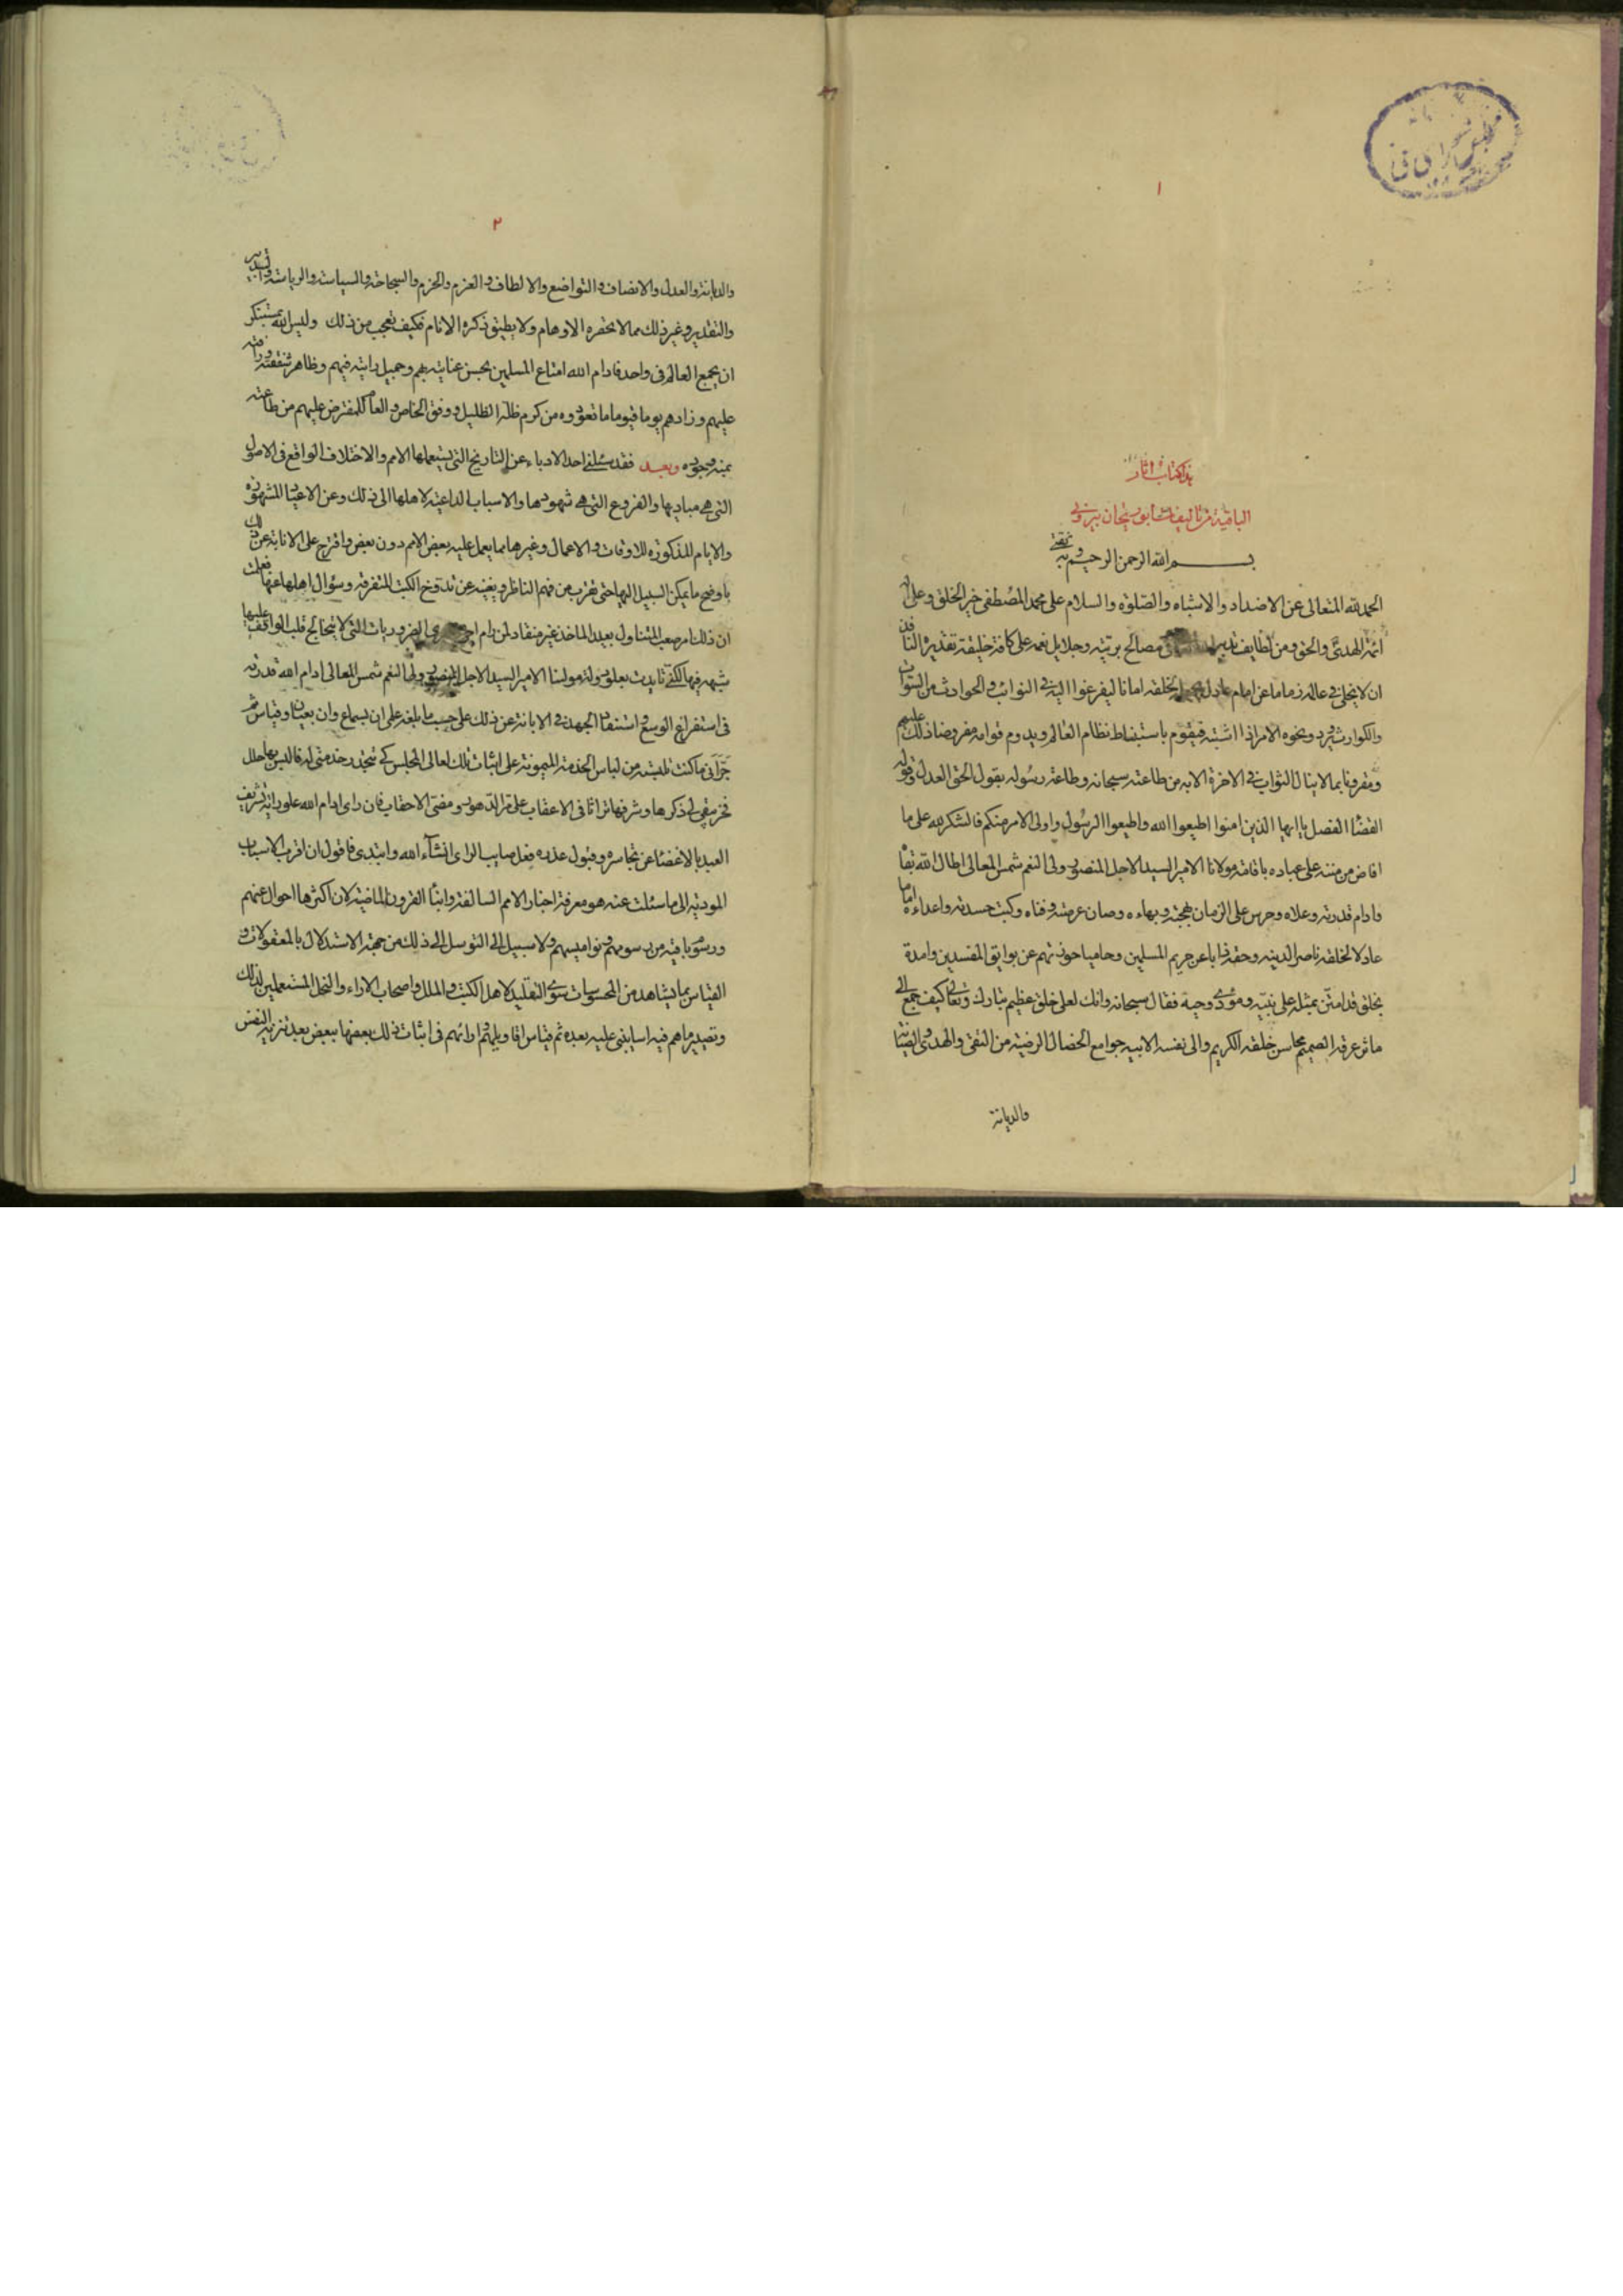 ١
هذا كتاب اثار
الباقية من تاليفات ابو ريحان بيرونى
بسم الله الرحمن الرحيم وبه ثقتى
الحمد لله المتعالى عن الاضداد والاشباه والصلوة والسلام على محمد المصطفى خير الخلق وعلى اله
ائمة الهدى والحق ومن لطايف تدبير مصالح بريته وجلايل نعمه على كافة خليقته تقديره النافذ
ان لا يخلى فى عالمه زماما عن امام عادل لخلقه امانا ليفزعوا اليه فى النوائب والحوادث من
والكوارث ونحوه الامر اذا اشتبه فيقوم باستبضاط نظام العالم ويدوم قوامه مفروضا ذلك عليهم
ومقرونا بما لا ينال الثواب فى الاخرة الا به من طاعته سبحانه وطاعة رسوله بقول الحق العدل وقوله
الفصل يا ايها الذين امنوا اطيعوا الله واطيعوا الرسول واولى الامر منكم فالشكر لله على ما
افاض من مننه على عباده باقامة مولانا الامير السيد الاجل المنصور ولى النعم شمس المعالى اطال الله بقاه
وادام قدرته وعلاه وحرس على الزمان بهجته وبهاءه وصان عرصته وفناه وكبت حسدته واعداءه اماما
عادلا لخلقه ناصرا لدينه وحقه ذابا عن حريم المسلمين وحاميا حوزتهم عن بوايق المفسدين وامده
بخلق قد امتن بمثله على نبيه ومؤدى وحيه فقال سبحانه وانك لعلى خلق عظيم تبارك وتعالى كيف جمع الى
ماثر عرقه الصميم محاسن خلقه الكريم والى نفسه الابيه جوامع الخصال الرضية من التقى والهدى والصيانة
والديانة
٢
والديانة والعدل والانصاف والتواضع والالطاف والعزم والحزم والسماحة والسياسة والرياسة والتدبير
والتقدير وغير ذلك مما لا تحضره الاوهام ولا يطيق ذكره الانام فكيف تعجب من ذلك وليس لله بمستنكر
ان يجمع العالم فى واحد فادام الله امتاع المسلمين بحسن عنايته بهم وجميل رايته فيهم وظاهر شفقته ورافته
عليهم وزادهم يوما فيوما ما تعودوه من كرم ظله الظليل ووفق الخاص والعام للمفترض عليهم من طاعته
بمنه وجوده وبعد فقد سئلنى احد الادباء عن التاريخ التى يستعملها الامم والاختلاف الواقع فى الاصول
التى هى مباديها والفروع التى هى شهورها والاسباب الداعية لاهلها الى ذلك وعن الاعياد المشهورة
والايام المذكورة للاوقات والاعمال وغيرها مما يعمل عليه بعض الامم دون بعض واقترح على الابانة عن ذلك
باوضح ما يمكن السبيل اليها حتى تقرب من فهم الناظر ويغنيه عن تدوخ الكتب المتفرقة وسؤال اهلها عنها فعلمت
ان ذلك امر صعب المتناول بعيد الماخذ غير منقاد لمن رام الضروريات التى لا تتخالج قلب الواقف عليها
شبهه فيها لكنى تايدت بعلو دولة مولنا الامير السيد الاجل المنصور ولى النعم شمس المعالى ادام الله قدرته
فى استفراغ الوسع واستنفاد الجهد فى الابانة عن ذلك على حسب ما بلغه على ان بسماع وان بعيان وقياس ثم
جرانى ما كنت تلبسته من لباس الخدمة الميمونة على اثبات ذلك لعالى المجلس كى يتجدد خدمتى له فالبس بها حلل
فخر مبقى لى ذكرها وشرفها تراثا فى الاعقاب على مر الدهور ومضى الاحقاب فان راى ادام الله علو رايه تشريف
العبد بالاغضاء عن تجاسره وقبول عذره فعل صايب الراى انشاء الله وابتدى فاقول ان اقرب الاسباب
المودية الى ما سئلت عنه هو معرفة اخبار الامم السالفة وانباء القرون الماضية لان اكثرها احوال عنهم
ورسوم باقية من رسومهم ونواميسهم ولا سبيل الى التوسل الى ذلك من جهة الاستدلال بالمعقولات و
القياس بما يشاهد من المحسوسات سوى التقليد لاهل الكتب والملل واصحاب الاراء والنحل المستعملين لذلك
وتصيير ما هم فيه اسا يبنى عليه بعده ثم قياس اقاويلهم وارائهم فى اثبات ذلك بعضها ببعض بعد تنزيه النفس